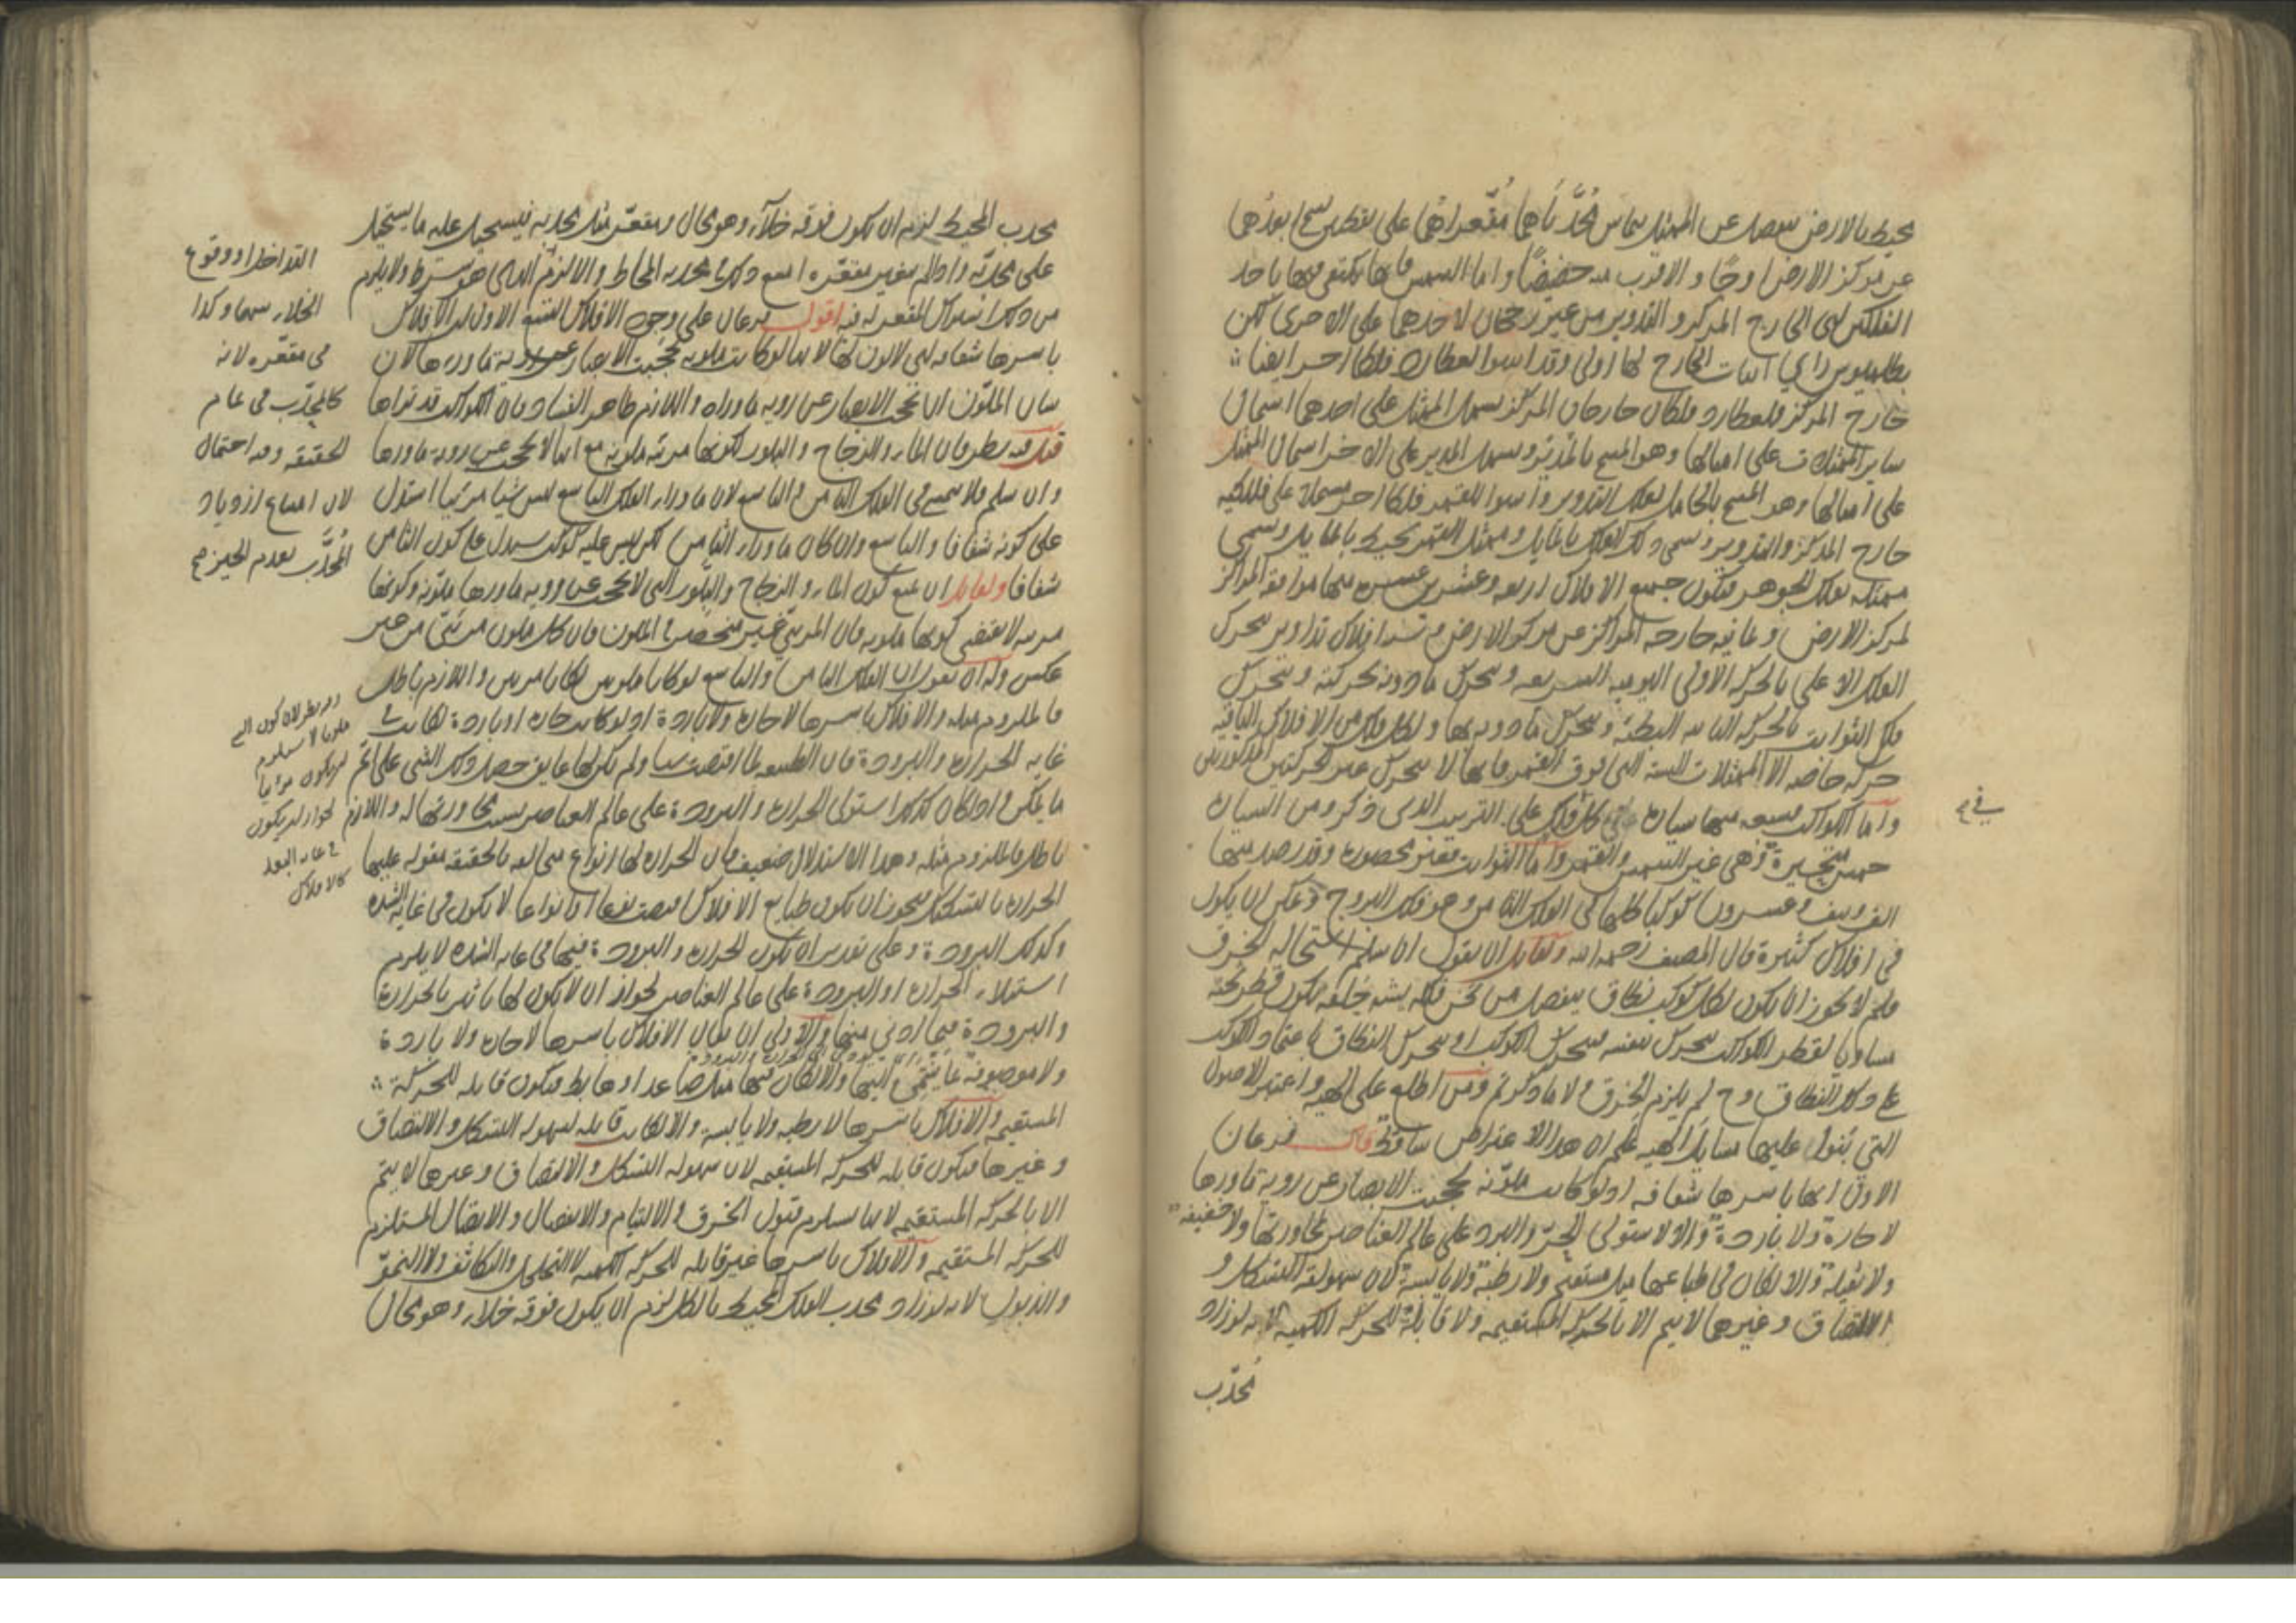 محيط بالارض ينفصل عن الممثل يتماس محدّباهما ومقعّراهما على نقطتين يسمى ابعدهما
عن مركز الارض اوجًا والاقرب منه حضيضًا واما الشمس فانها يكتفى فيها باحد
الفلكين اعنى الخارج المركز والتدوير من غير رجحان لاحدهما على الاخرى لكن
بطلميوس راى اثبات الخارج لها اولى وقد اثبتوا لعطارد فلكا اخر ايضا
خارج المركز فلعطارد فلكان خارجان المركز يسمل الممثل على احدهما اشتمال
ساير الممثلات على امثالها وهو المسمى بالمدير ويشمل المدير على الاخر اشتمال الممثل
على امثالها وهو المسمى بالحامل لفلك التدوير واثبتوا للقمر فلكا اخر مشتملا على فلكيه
خارج المركز والتدوير ويسمى ذلك الفلك بالمايل وممثل القمر محيط بالمايل ويسمى
ممثله بفلك الجوهر فيكون جميع الافلاك اربعة وعشرين عشرة منها موافقة المراكز
لمركز الارض وثمانية خارجة المراكز عن مركز الارض و ستة افلاك تداوير يتحرك
الفلك الاعلى بالحركة الاولى اليومية السريعة ويحرك ما دونه بحركته ويتحرك
فلك الثوابت بالحركة الثانية البطيئة ويحرك ما دونه بها ولكل فلك من الافلاك الباقية
حركة خاصة الا الممثلات الستة التى فوق القمر فانها لا يتحرك غير الحركتين المذكورتين
واما الكواكب فسبعة منها سيارة فى كل فلك على الترتيب الذى ذكر ومن السيارة
خمسة متحيرة وهى غير الشمس والقمر واما الثوابت فغير محصورة وقد رصد منها
الف ونيف وعشرون كوكبا كلها فى الفلك الثامن وهو فلك البروج ويمكن ان يكون
فى افلاك كثيرة قال المصنف رحمه الله ولقائل ان يقول ان سلم استحالة الخرق
فلم لا يجوز ان يكون لكل كوكب نطاق ينفصل من ثخن فلكه يشبه حلقة يكون قطر ثخنه
مساويا لقطر الكواكب يتحرك بنفسه فيتحرك الكوكب او يتحرك النطاق باعتماد الكوكب
على ذلك النطاق وح لم يلزم الخرق ولا ما ذكرتم ومن اطلع على الهيئة واعتبر الاصول
التى يبتنى عليها مسايل الهيئة علم ان هذا الاعتراض ساقط قال فرعان
الاول انها باسرها شفافة اذ لو كانت ملوّنة لحجبت الابصار عن روية ما ورها
لا حارة ولا باردة والا لاستولى الحرّ والبرد على عالم العناصر لمجاورتها ولا خفيفة
ولا ثقيلة والا لكان فى طباعها ميل مستقيم ولا رطبة ولا يابسة لان سهولة التشكل و
الالتصاق وغيرها لا يتم الا بالحركة المستقيمة ولا قابلة للحركة الكمية لانه لو زاد
محدّب
فى
محدب المحيط لزم ان يكون فوقه خلآء وهو محال ومقعّره مثل محدبه فيستحيل عليه ما يستحيل
على محدبه واذا لم يتغير مقعّره امتنع ذلك فى محدب المحاط والا لزم التداخل هو ستره ولا يلزم
من ذلك اشتراك المقعر له فيه اقول فرعان على وجود الافلاك التسع الاول ان الافلاك
باسرها شفافة اى لا لون لها لانها لو كانت ملونة لحجبت الابصار عن روية ما ورءها لان
شان الملوّن ان يحجب الابصار عن روية ما وراه واللازم ظاهر الفساد فان الكواكب قد نراها
قيل فيه نظر فان الماء والزجاج والبلور لكونها مرئية ملونة مع انها لا يحجب عن روية ما ورها
وان سلم فلا يتمشى فى الفلك الثامن و التاسع لان ما وراء الفلك التاسع ليس شيا مرئيا استدل
على كونه شفافا والتاسع وان كان ما وراء الثامن لكن ليس عليه كوكب يستدل على كون الثامن
شفافا ولقائل ان يمنع كون الماء والزجاج والبلور التى لا يحجب عن روية ما ورها ملونة وكونها
مرئية لا يقتضى كونها ملونة فان المرئى غير منحصر فى الملون فان كل ملون مرئى من غير
عكس وله ان يقول ان الفلك الثامن والتاسع لو كانا ملونين لكانا مرئيين واللازم باطل
فالملزوم مثله والافلاك باسرها لا حارة ولا باردة اذ لو كانت حارة او باردة لكانت فى
غاية الحرارة والبرودة فان الطبيعة لما اقتضت شيا ولم يكن لها عايق حصل ذلك الشى على اتم
ما يمكن ولو كان كذلك استولى الحرارة والبرودة على عالم العناصر بسبب مجاورتها له واللازم
باطل فالملزوم مثله وهذا الاستدلال ضعيف فان الحرارة لها انواع متخالفة بالحقيقة مقولة عليها
الحرارة بالتشكيك فيجوز ان يكون طبايع الافلاك اقتضت نوعا او انواعا لا يكون فى غاية الشدة
وكذلك البرودة وعلى تقدير ان يكون الحرارة والبرودة فيها فى غاية الشدة لا يلزم
استيلاء الحرارة او البرودة على عالم العناصر لجواز ان لا يكون لها تاثير بالحرارة
والبرودة فيما ادنى منها والاولى ان يقال الافلاك باسرها لا حارة ولا باردة
ولا موصوفة بما ينتمى اليها والا لكان فيها ميل صاعد او هابط فيكون قابلة للحركة
المستقيمة والافلاك باسرها لا رطبة ولا يابسة والا لكانت قابلة لسهولة التشكل والالتصاق
وغيرها فيكون قابلة للحركة المستقيمة لان سهولة التشكل والالتصاق وغيرها لا يتم
الا بالحركة المستقيمة لانها يستلزم قبول الخرق والالتيام والانفصال والاتصال المستلزم
للحركة المستقيمة والافلاك باسرها غير قابلة للحركة الكمية لا التخلخل والتكاثف ولا النموّ
والذبول لانه لو زاد محدب الفلك المحيط بالكل لزم ان يكون فوقه خلاء وهو محال
التداخل او وقوع
الخلاء بينهما وكذا
فى مقعّره لانه
كالمحدّب فى تمام
الحقيقة وفيه احتمال
لان امتناع ازدياد
المحدّب لعدم الحيز
وفيه نظر لان كون الشى
ملونا لا يستلزم
ان يكون مرئيا
لجواز ان يكون
فى غاية البعد
كالافلاك